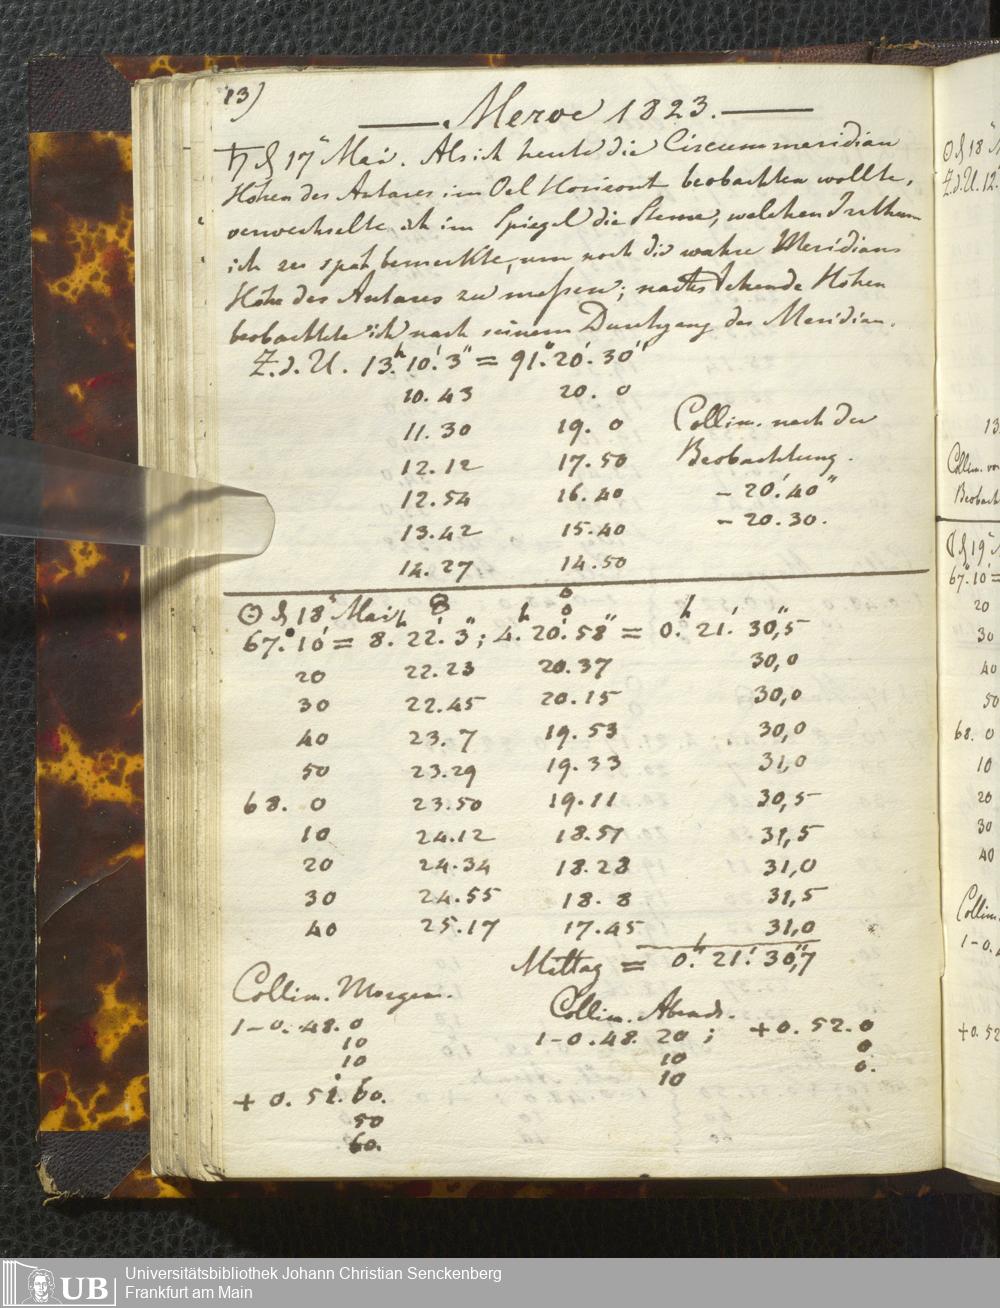 13)
Meroe 1823.
♄ d 17" Mai. Als ich heute die Circummeridian
Höhen des Antares im Oel Horizont beobachten wollte,
verwechselte ich im Spiegel die Sterne, welchen Irrthum
ich zu spät bemerkte, um noch die wahre Meridians
Höhe des Antares zu meßen; nachstehende Höhen
beobachtete ich nach seinem Durchgang des Meridian.
Z. d. U. 13.h 10.' 3" = 91.° 20.' 30"
10. 43 20. 0
11. 30 19. 0 Collim. nach der
12. 12 17. 50 Beobachtung.
12. 54 16. 40 - 20.' 40"
13. 42 15. 40 - 20. 30.
14. 27 14. 50
☉ d 18" Mai
67.° 10' = 8.h 22.' 3"; 4.h 20.' 58" = 0.h 21.' 30",5
20 22. 23 20. 37 30,0
30 22. 45 20. 15 30,0
40 23. 7 19. 53 30,0
50 23. 29 19. 33 31,0
68. 0 23. 50 19. 11 30,5
10 24. 12 18. 51 31,5
20 24. 34 18. 28 31,0
30 24. 55 18. 8 31,5
40 25. 17 17. 45 31,0
Mittag = 0.h 21.' 30",7
Collim. Morgen. Collim. Abends.
1-0. 48. 0 1-0. 48. 20 ; +0. 52. 0
10 10 0
10 10 0.
+ 0. 51. 60.
50
60.
☉ d 18"
Z. d. U. 12.
13
Collim. vo
Beobach
☾ d 19"
67.° 10' =
20
30
40
50
68. 0
10
20
30
40
Collim.
1-0.
+0. 52
UB
Universitätsbibliothek Johann Christian Senckenberg
Frankfurt am Main